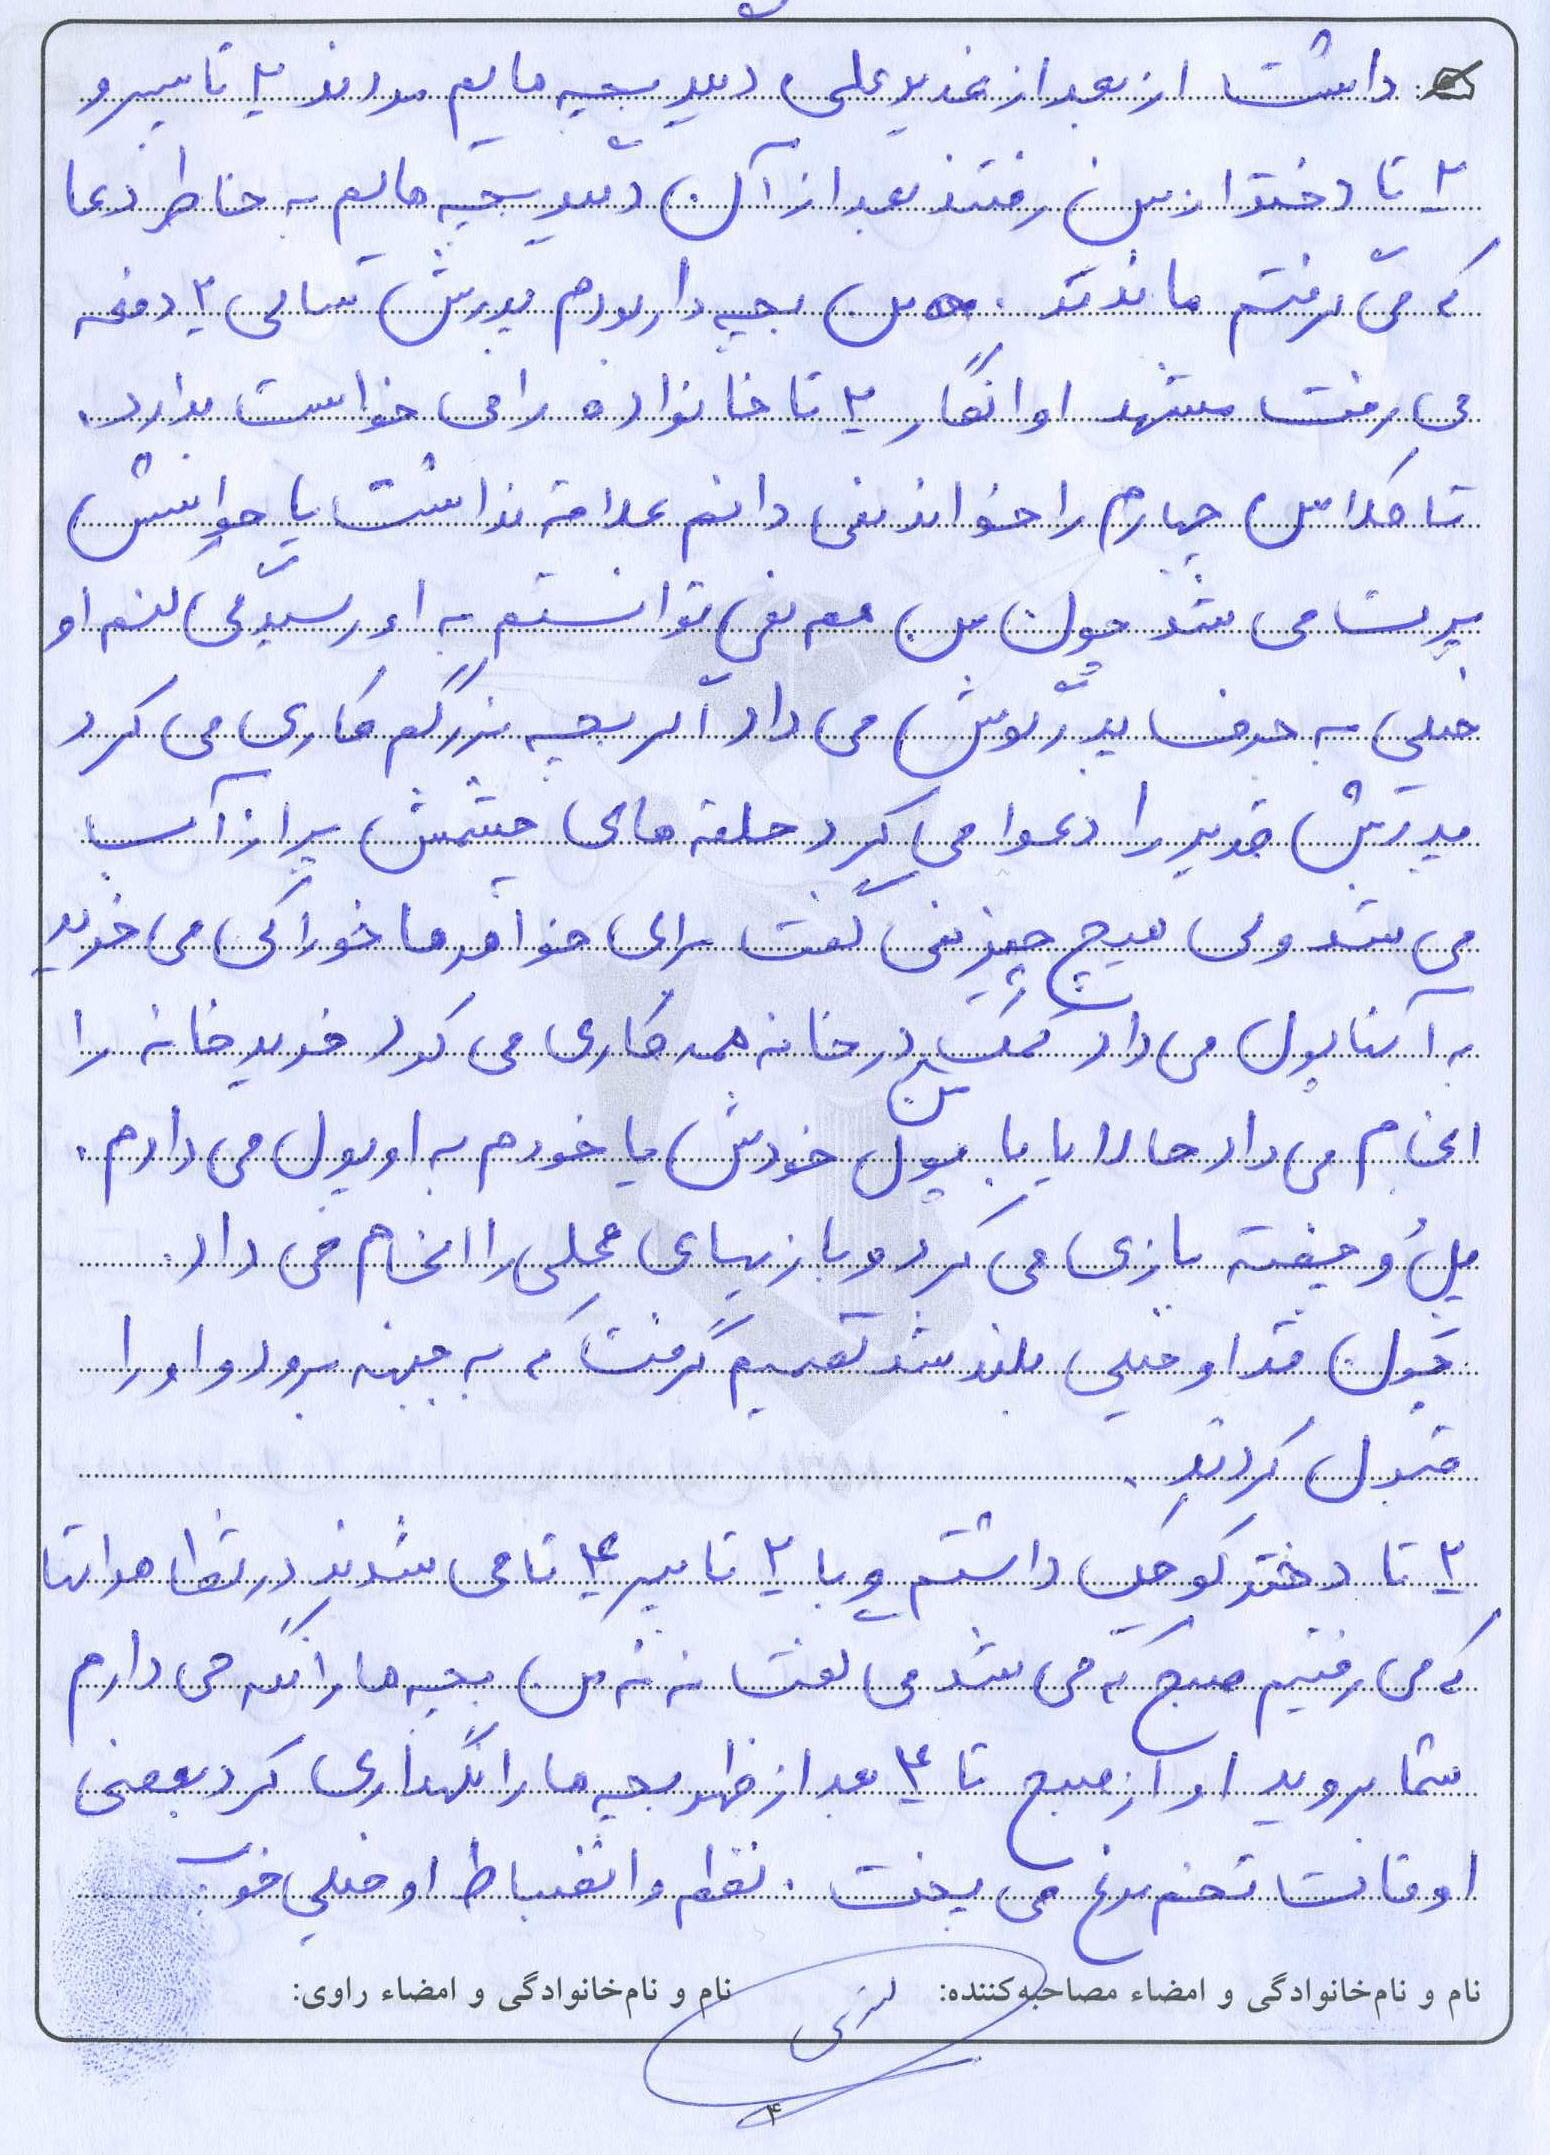 داشت از بعد از غدیر علی دیگر بچه هایم مردند ۲ تا پسر و
۲ تا دختر از من رفتند بعد از آن دیگر بچه هایم به خاطر دعا
که می گرفتم ماندند . من بچه دار بودم پدرش سالی ۲ دفعه
می رفت مشهد او انگار ۲ تا خانواده را می خواست بدارد.
تا کلاس چهارم را خواند نمی دانم علاقه نداشت یا حواسش
پرت می شد چون من هم نمی توانستم به او رسیدگی کنم او
خیلی به حرف پدر گوش می داد اگر بچه بزرگم کاری می کرد
پدرش قدیر را دعوا می کرد حلقه های چشمش پر از آب
می شد ولی هیچ چیز نمی گفت برای خواهرها خوراکی می خرید
به آنها پول می داد کمک من در خانه همه کاری می کرد خرید خانه را
انجام می داد حالا یا با پول خودش یا خودم به او پول می دادم.
پِلُ و چفته بازی می کرد و بازیهای محلی را انجام می داد.
چون قد او خیلی بلند شد تصمیم گرفت که به جبهه برود و او را
قبول کردند.
۲ تا دختر کوچک داشتم و با ۲ تا پسر ۴ تا می شدند در تظاهراتها
که می رفتیم صبح که می شد می گفت نه نه من بچه ها را نگه می دارم
شما بروید او از صبح تا ۴ بعد از ظهر بچه ها را نگهداری کرد بعضی
اوقات تخم مرغ می پخت . نظم و انضباط او خیلی خوب
نام و نام‌خانوادگی و امضاء مصاحبه‌کننده: نام و نام‌خانوادگی و امضاء راوی:
۴